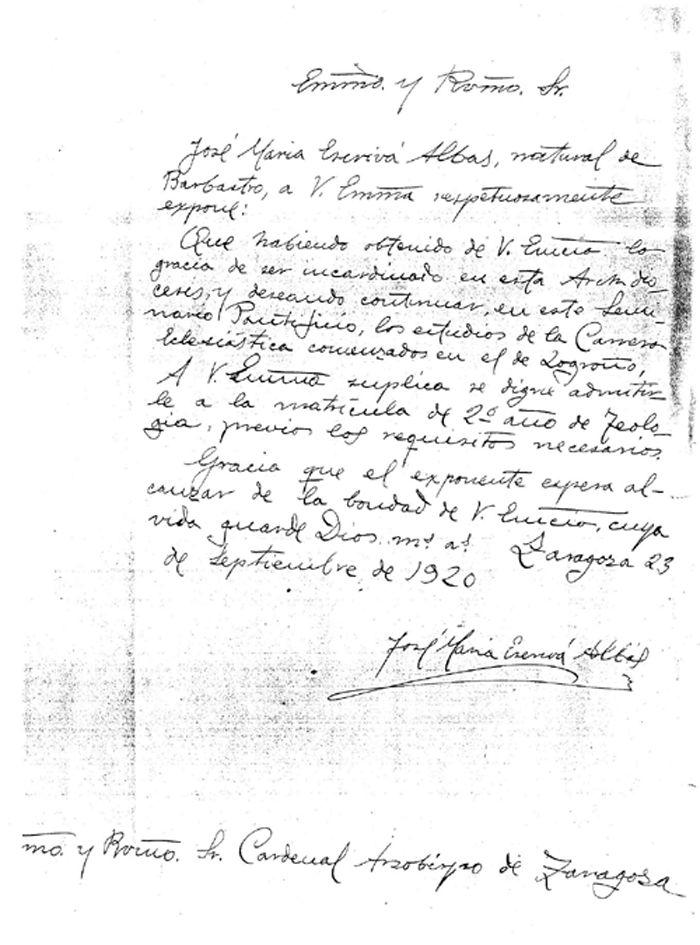 Emmo. y Rvmo. Sr.
José Maria Escrivá Albas, natural de
Barbastro, a V. Emma respetuosamente
expone:
Que habiendo obtenido de V. Emcia la
gracia de ser incardinado en esta Archidió-
cesis, y deseando continuar, en este Semi-
nario Pontificio, los estudios de la Carrera
Eclesiástica comenzados en el de Logroño,
A V. Emma suplica se digne admitir-
le a la matrícula de 2º año de Teolo-
gia, previos los requisitos necesarios.
Gracia que el exponente espera al-
canzar de la bondad de V. Emcia, cuya
vida guarde Dios m.s a.s Zaragoza 23
de septiembre de 1920
José Maria Escrivá Albás
mo. y Rvmo. Sr. Cardenal Arzobispo de Zaragoza